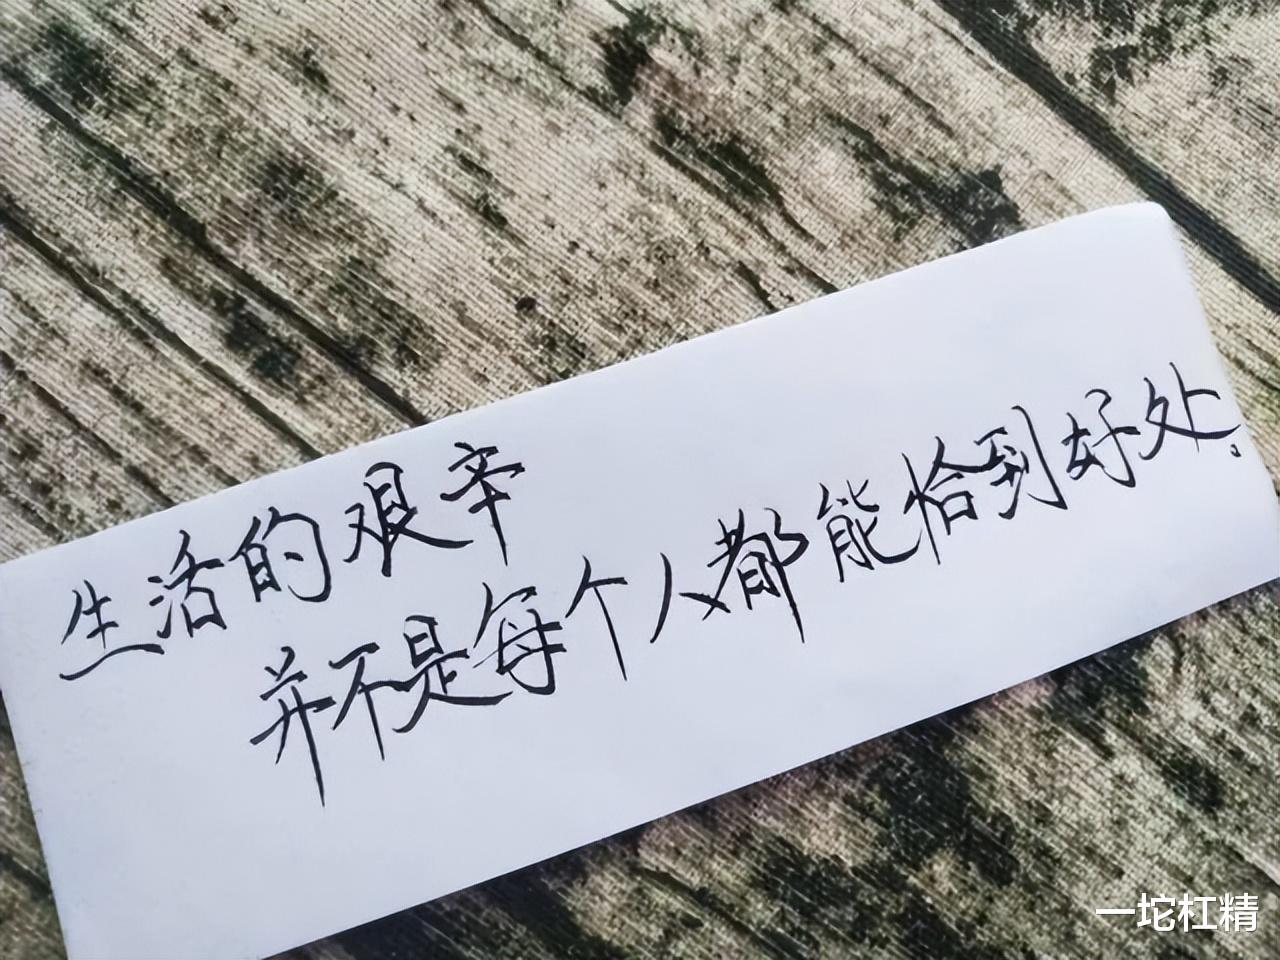 生活的艰辛
并不是每个人都能恰到好处。
一坨杠精